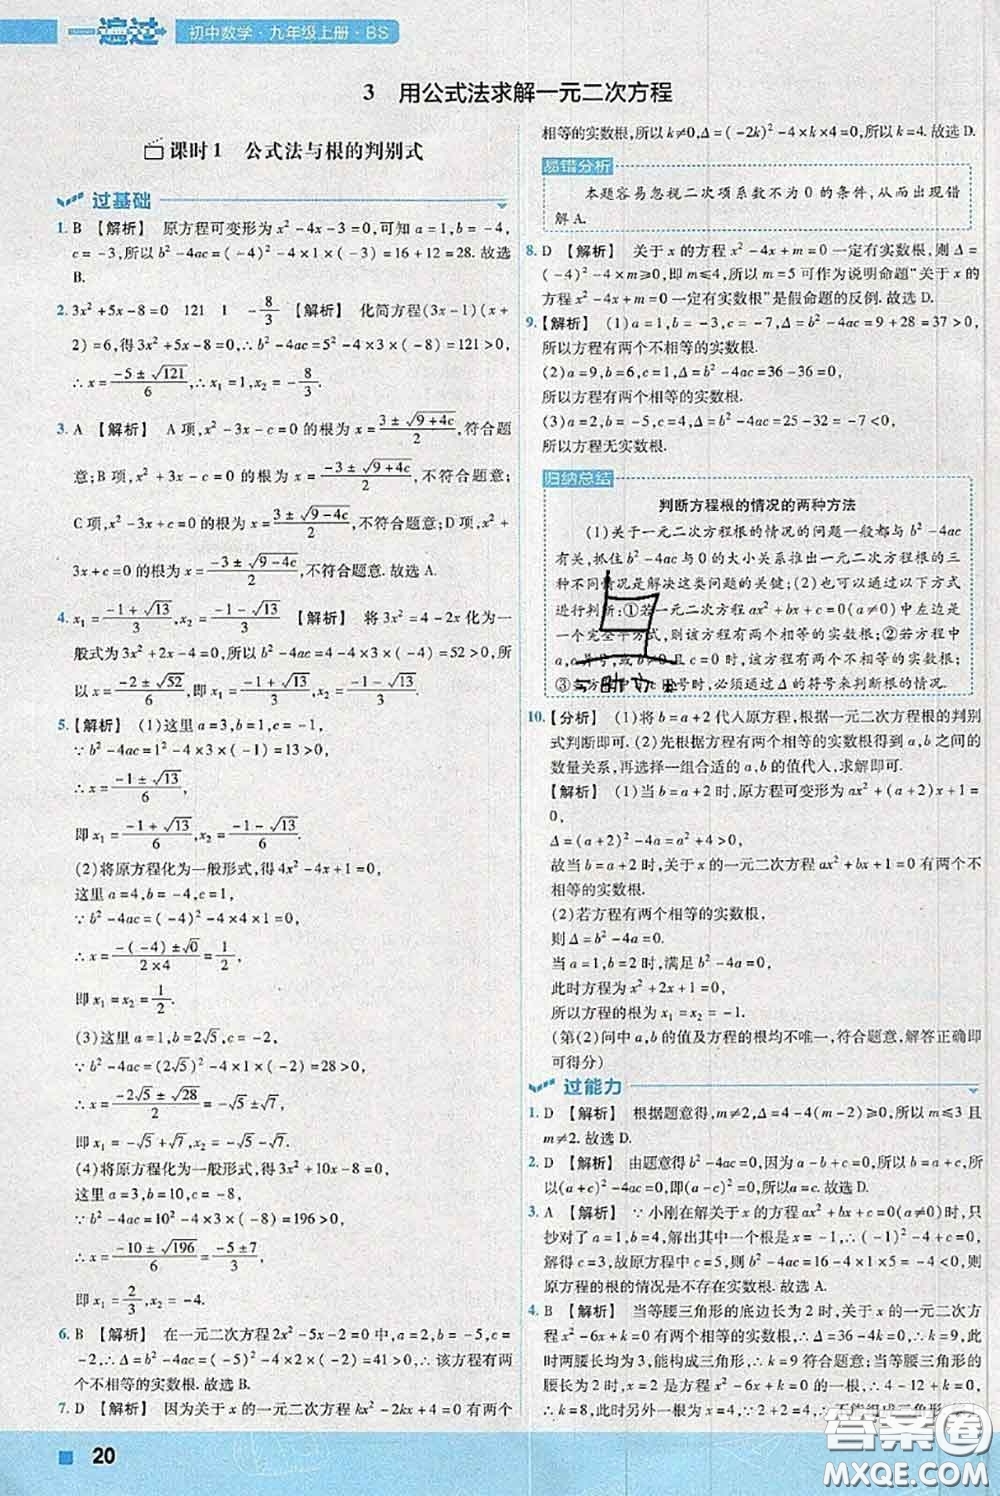 一遍过 初中数学·九年级上册·BS
3 用公式法求解一元二次方程
课时1 公式法与根的判别式
过基础
1. B 【解析】 原方程可变形为x²-4x-3=0,可知a=1,b=-4,
c=-3,所以b²-4ac=(-4)²-4×1×(-3)=16+12=28.故选
B.
2. 3x²+5x-8=0 121 1 -8/3 【解析】 化简方程(3x-1)(x+
2)=6,得3x²+5x-8=0,∴b²-4ac=5²-4×3×(-8)=121,
∴x=(-5±√121)/6,∴x₁=1,x₂=-8/3.
3. A 【解析】 A项,x²-3x-c=0的根为x=(3±√(9+4c))/2,符合题
意;B项,x²+3x-c=0的根为x=(-3±√(9+4c))/2,不符合题意;
C项,x²-3x+c=0的根为x=(3±√(9-4c))/2,不符合题意;D项,x²+
3x+c=0的根为x=(-3±√(9-4c))/2,不符合题意.故选A.
4. x₁=(-1+√13)/3,x₂=(-1-√13)/3 【解析】 将3x²=4-2x化为一
般式为3x²+2x-4=0,所以b²-4ac=2²-4×3×(-4)=52>0,所
以x=(-2±√52)/6,即x₁=(-1+√13)/3,x₂=(-1-√13)/3.
5. 【解析】 (1)这里a=3,b=1,c=-1,
∵b²-4ac=1²-4×3×(-1)=13>0,
∴x=(-1±√13)/6,
即x₁=(-1+√13)/6,x₂=(-1-√13)/6.
(2)将原方程化为一般形式,得4x²-4x+1=0,
这里a=4,b=-4,c=1,
∵b²-4ac=(-4)²-4×4×1=0,
∴x=(-(-4)±√0)/(2×4)=1/2,
即x₁=x₂=1/2.
(3)这里a=1,b=2√5,c=-2,
∵b²-4ac=(2√5)²-4×1×(-2)=28>0,
∴x=(-2√5±√28)/2=-√5±√7,
即x₁=-√5+√7,x₂=-√5-√7.
(4)将原方程化为一般形式,得3x²+10x-8=0,
这里a=3,b=10,c=-8,
∵b²-4ac=10²-4×3×(-8)=196>0,
∴x=(-10±√196)/6=(-5±7)/3,
即x₁=2/3,x₂=-4.
6. B 【解析】 在一元二次方程2x²-5x-2=0中,a=2,b=-5,c=
-2,∴b²-4ac=(-5)²-4×2×(-2)=41>0,∴该方程有两
个不相等的实数根.故选B.
7. D 【解析】 因为关于x的一元二次方程kx²-2kx+4=0有两个
相等的实数根,所以k≠0,Δ=(-2k)²-4×k×4=0,所以k=4.故选D.
易错分析
本题容易忽视二次项系数不为0的条件,从而出现错
解A.
8. D 【解析】 关于x的方程x²-4x+m=0一定有实数根,则Δ=
(-4)²-4×m≥0,即m≤4,所以m=5可作为说明命题“关于x的
方程x²-4x+m=0一定有实数根”是假命题的反例.故选D.
9. 【解析】 (1)a=1,b=-3,c=-7,Δ=b²-4ac=9+28=37>0,
所以方程有两个不相等的实数根.
(2)a=9,b=6,c=1,Δ=b²-4ac=36-36=0,
所以方程有两个相等的实数根.
(3)a=2,b=-5,c=4,Δ=b²-4ac=25-32=-7<0,
所以方程无实数根.
归纳总结
判断方程根的情况的两种方法
(1)关于一元二次方程根的情况的问题一般都与b²-4ac
有关,抓住b²-4ac与0的大小关系推出一元二次方程根的三
种不同情况是解决这类问题的关键;(2)也可以通过以下方式
进行判断:①若一元二次方程ax²+bx+c=0(a≠0)中左边是
一个完全平方式,则该方程有两个相等的实数根;②若方程中
a,c异号,或b≠0且c=0时,该方程有两个不相等的实数根;
③当方程中a,c同号时,必须通过Δ的符号来判断根的情况.
10. 【分析】 (1)将b=a+2代入原方程,根据一元二次方程根的判别
式判断即可.(2)先根据方程有两个相等的实数根得到a,b之间的
数量关系,再选择一组合适的a,b的值代入,求解即可.
【解析】 (1)当b=a+2时,原方程可变形为ax²+(a+2)x+1=
0,
Δ=(a+2)²-4a=a²+4a+4-4a=a²+4>0,
故当b=a+2时,关于x的一元二次方程ax²+bx+1=0有两个不
相等的实数根.
(2)若方程有两个相等的实数根,
则Δ=b²-4a=0.
当a=1,b=2时,满足b²-4a=0,
此时方程为x²+2x+1=0,
所以方程的根为x₁=x₂=-1.
(第(2)问中a,b的值及方程的根均不唯一,符合题意,解答正确即
可得分)
过能力
1. D 【解析】 根据题意得,m≠2,Δ=4-4(m-2)≥0,所以m≤3且
m≠2.故选D.
2. D 【解析】 由题意得b²-4ac=0,因为a-b+c=0,所以b=a+c,
所以(a+c)²-4ac=0,即(a-c)²=0,所以a=c.故选D.
3. A 【解析】 ∵小刚在解关于x的方程ax²+bx+c=0(a≠0)时,只
抄对了a=1,b=4,解出其中一个根是x=-1,∴(-1)²-4+c=0,
解得c=3,故原方程中c=5,则b²-4ac=16-4×1×5=-4<0,则
原方程的根的情况是不存在实数根.故选A.
4. B 【解析】 当等腰三角形的底边长为2时,关于x的一元二次方程
x²-6x+k=0有两个相等的实数根,∴Δ=36-4k=0,∴k=9,此
时两腰长均为3,能构成三角形,∴k=9符合题意;当等腰三角形
的腰长为2时,x=2是方程x²-6x+k=0的根,∴4-12+k=0,∴
k=8,此时另外一根为x=4,∵2+2=4,∴不能组成三角形,
20
答案圈
MXQE.COM